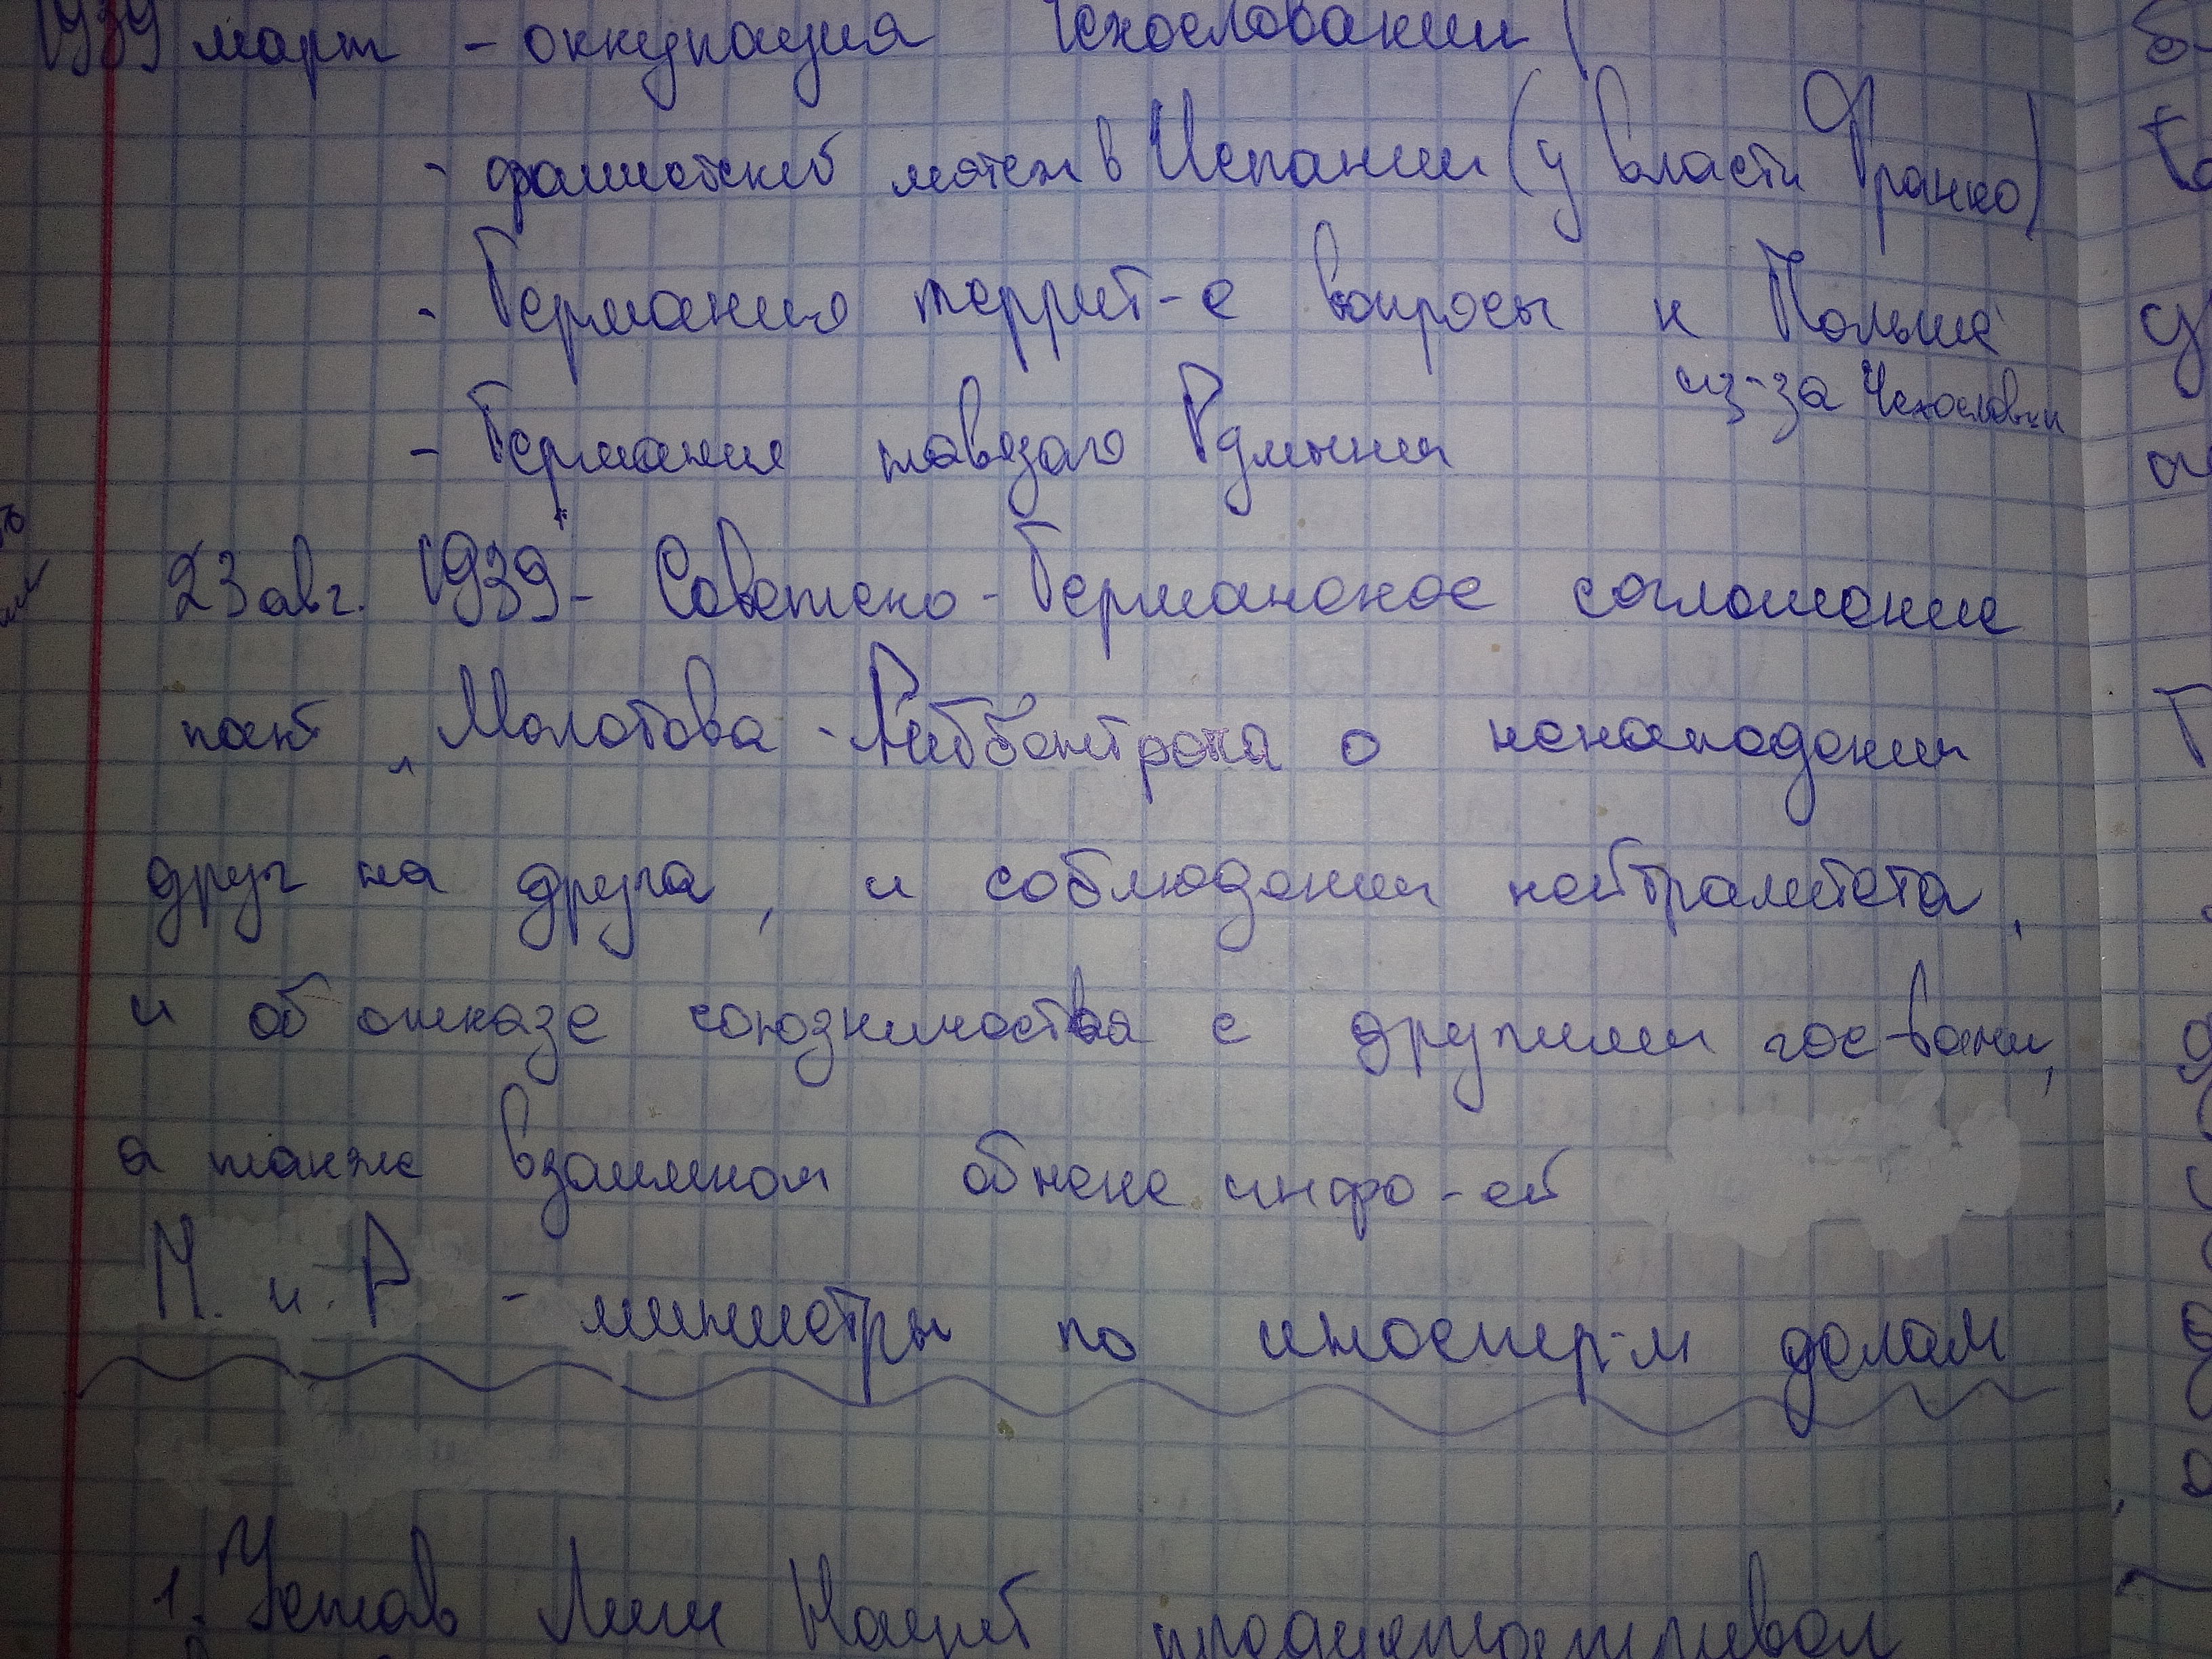 1939 март - оккупация Чехословакии
- фашистский мятеж в Испании (у власти Франко)
- Германия террит-е вопросы к Польше
из-за Чехословкии
- Германия навязала Румынии
23 авг. 1939 - Советско-Германское соглашение
пакт „Молотова - Риббентропа о ненападении
друг на друга, и соблюдении нейтралитета,
и об отказе союзничества с другими гос-вами,
а также взаимном обмене инфо-ей
М. и. Р - министры по иностр-м делам
1. Устав Лиги Наций предусматривал